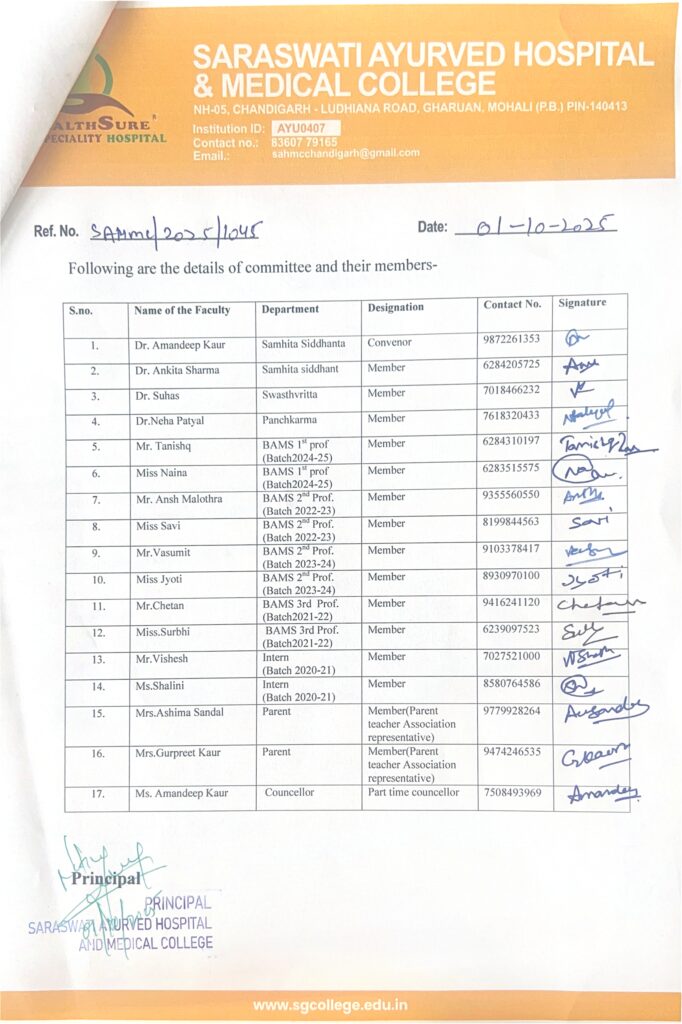 SARASWATI AYURVED HOSPITAL
& MEDICAL COLLEGE
NH-05, CHANDIGARH - LUDHIANA ROAD, GHARUAN, MOHALI (P.B.) PIN-140413
Institution ID: AYU0407
Contact no.: 83607 79165
Email.: sahmcchandigarh@gmail.com
ALTHSURE
PECIALITY HOSPITAL
Ref. No. SAHMC/2025/1045 Date: 01-10-2025
Following are the details of committee and their members-
S.no. Name of the Faculty Department Designation Contact No. Signature
1. Dr. Amandeep Kaur Samhita Siddhanta Convenor 9872261353
2. Dr. Ankita Sharma Samhita siddhant Member 6284205725
3. Dr. Suhas Swasthvritta Member 7018466232
4. Dr.Neha Patyal Panchkarma Member 7618320433
5. Mr. Tanishq BAMS 1st prof Member 6284310197 Tanishq
(Batch2024-25)
6. Miss Naina BAMS 1st prof Member 6283515575
(Batch2024-25)
7. Mr. Ansh Malothra BAMS 2nd Prof. Member 9355560550
(Batch 2022-23)
8. Miss Savi BAMS 2nd Prof. Member 8199844563 Savi
(Batch 2022-23)
9. Mr.Vasumit BAMS 2nd Prof. Member 9103378417
(Batch 2023-24)
10. Miss Jyoti BAMS 2nd Prof. Member 8930970100 Jyoti
(Batch 2023-24)
11. Mr.Chetan BAMS 3rd Prof. Member 9416241120 Chetan
(Batch2021-22)
12. Miss.Surbhi BAMS 3rd Prof. Member 6239097523
(Batch2021-22)
13. Mr.Vishesh Intern Member 7027521000
(Batch 2020-21)
14. Ms.Shalini Intern Member 8580764586
(Batch 2020-21)
15. Mrs.Ashima Sandal Parent Member(Parent 9779928264
teacher Association
representative)
16. Mrs.Gurpreet Kaur Parent Member(Parent 9474246535
teacher Association
representative)
17. Ms. Amandeep Kaur Councellor Part time councellor 7508493969 Amandeep
Principal
PRINCIPAL
SARASWATI AYURVED HOSPITAL
AND MEDICAL COLLEGE
www.sgcollege.edu.in